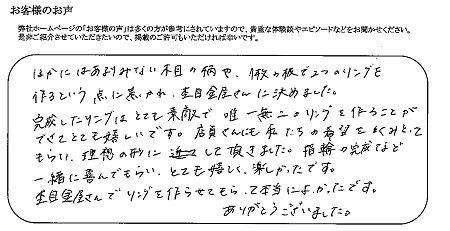 お客様のお声
弊社ホームページの「お客様の声」は多くの方が参考にされていますので、貴重な体験談やエピソードなどをお聞かせください。
是非ご紹介させていただきたいので、掲載のご許可もいただければ幸いです。
ほかにはあまりみない木目の柄や、1枚の板で2つのリングを
作るという点に惹かれ、杢目金屋さんに決めました。
完成したリングはとても素敵で唯一無二のリングを作ることが
できてとても嬉しいです。店員さんにも私たちの希望をくみとって
もらい、理想の形に近づけて頂きました。指輪の完成など
一緒に喜んでもらい、とても嬉しく、楽しかったです。
杢目金屋さんでリングを作らせてもらって本当によかったです。
ありがとうございました。